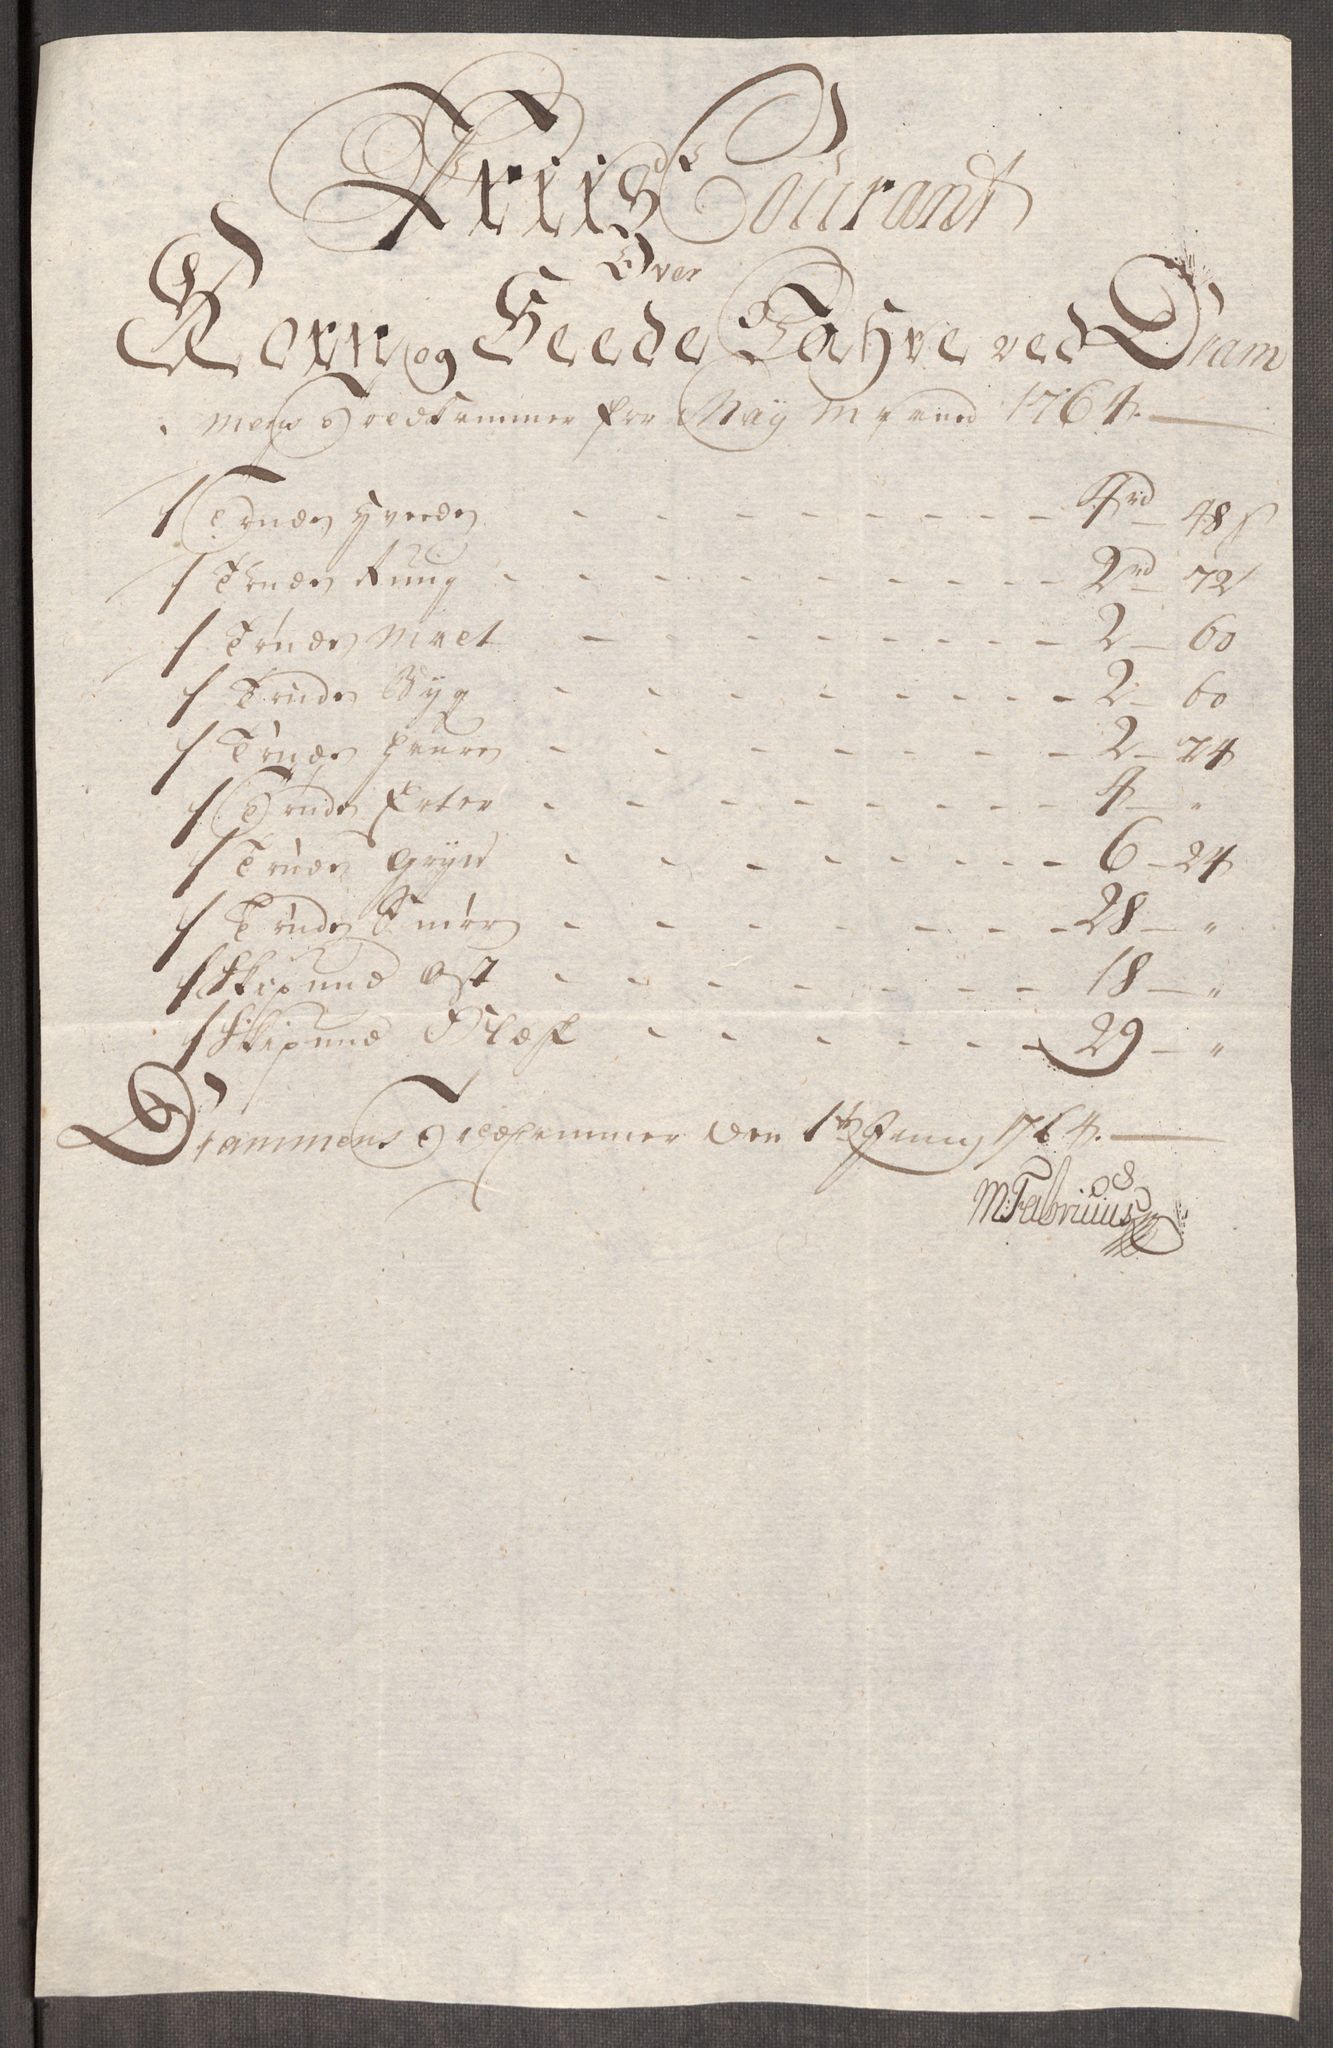 Priis Courant
Over
Korn og Feede Vahre ved Dram
mens Toldkammer for Maij Maaned 1764.
1 Tønde Hvede - - - - - - - - 4 rd - 48 s
1 Tønde Rug - - - - - - - - 2 rd - 72
1 Tønde Malt - - - - - - - 2 - 60
1 Tønde Byg - - - - - - - 2 - 60
1 Tønde Havre - - - - - - - 2 - 24
1 Tønde Erter - - - - - - - 4 - "
1 Tønde Gryn - - - - - - - 6 - 24
1 Tønde Smør - - - - - - - 28 - "
1 Skipund Ost - - - - - - - 18 - "
1 Skipund Flesk - - - - - - 29 - "
Drammens Toldkammer den 1te Junij 1764.
M: Fabricius